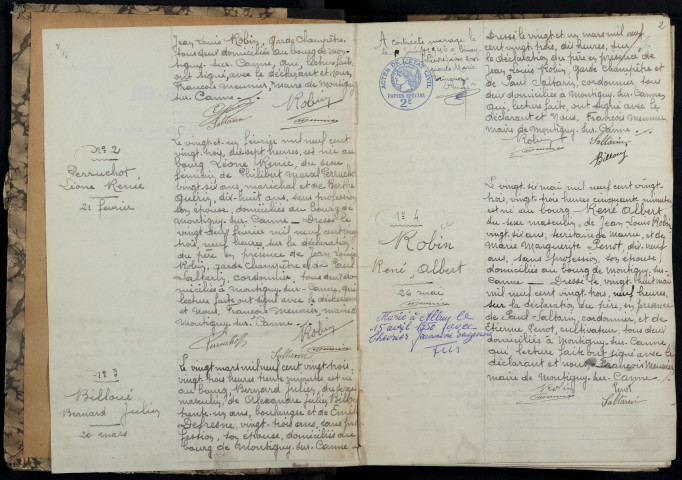 Jean Louis Robin, garde champêtre,
tous deux domiciliés au bourg de Mon-
tigny-sur-Canne, qui, lecture faite,
ont signé avec le déclarant et Nous,
François Meunier, maire de Montigny
sur-Canne.
Robin
N° 2
Perruchot
Léone Renée
21 février
Le vingt et un février mil neuf cent
vingt-trois, dix-sept heures, est née au
bourg Léone Renée, du sexe
féminin, de Philibert Marcel Perruchot
vingt-six ans, maréchal et de Berthe
dix-huit ans, sans profession
son épouse, domiciliés au bourg de
Montigny-sur-Canne. Dressé le
vingt-deux février mil neuf cent vingt
trois, neuf heures, sur la déclaration
du père en présence de Jean Louis
Robin, garde champêtre et de Paul
Saltarin, cordonnier, tous deux do-
miciliés à Montigny-sur-Canne, qui,
lecture faite ont signé avec le déclarant
et Nous, François Meunier, maire de
Montigny-sur-Canne.
Perruchot
Robin
Saltarin
N° 3
Billoué
Bernard Julien
20 mars
Le vingt mars mil neuf cent vingt-trois,
vingt-trois heures trente minutes est né
au bourg Bernard Julien, du sexe
masculin, de Alexandre Julien Billoué
trente-un ans, boulanger et de
Defresne, vingt-trois ans, sans pro-
fession, son épouse, domiciliés au
bourg de Montigny-sur-Canne.
2
A contracté mariage le
ACTES DE L'ETAT CIVIL
PAPIER SPECIAL
2F
Dressé le vingt et un mars mil neuf
cent vingt-trois, dix heures, sur
la déclaration du père en présence de
Jean Louis Robin, garde champêtre et
de Paul Saltarin, cordonnier tous
deux domiciliés à Montigny-sur-Canne,
qui, lecture faite, ont signé avec le
déclarant et Nous, François Meunier,
maire de Montigny-sur-Canne.
Robin
Saltarin
Billoué
N° 4
Robin
René Albert
26 mai
Marié à
15 avril 1950 avec
Le vingt-six mai mil neuf cent vingt-
trois, vingt heures cinquante minutes
est né au bourg René Albert
du sexe masculin, de Jean Louis Robin
vingt-six ans, secrétaire de mairie, et de
Marie Marguerite Penot, dix-neuf
ans, sans profession, son épouse,
domiciliés au bourg de Montigny-sur-
Canne. Dressé le vingt-huit mai
mil neuf cent vingt-trois, neuf heures,
sur la déclaration du père, en présence
de Paul Saltarin, cordonnier, et de
Etienne Penot, cultivateur, tous deux
domiciliés à Montigny-sur-Canne,
qui, lecture faite ont signé avec le
déclarant et nous, François Meunier
maire de Montigny-sur-Canne.
Robin
Penot
Saltarin